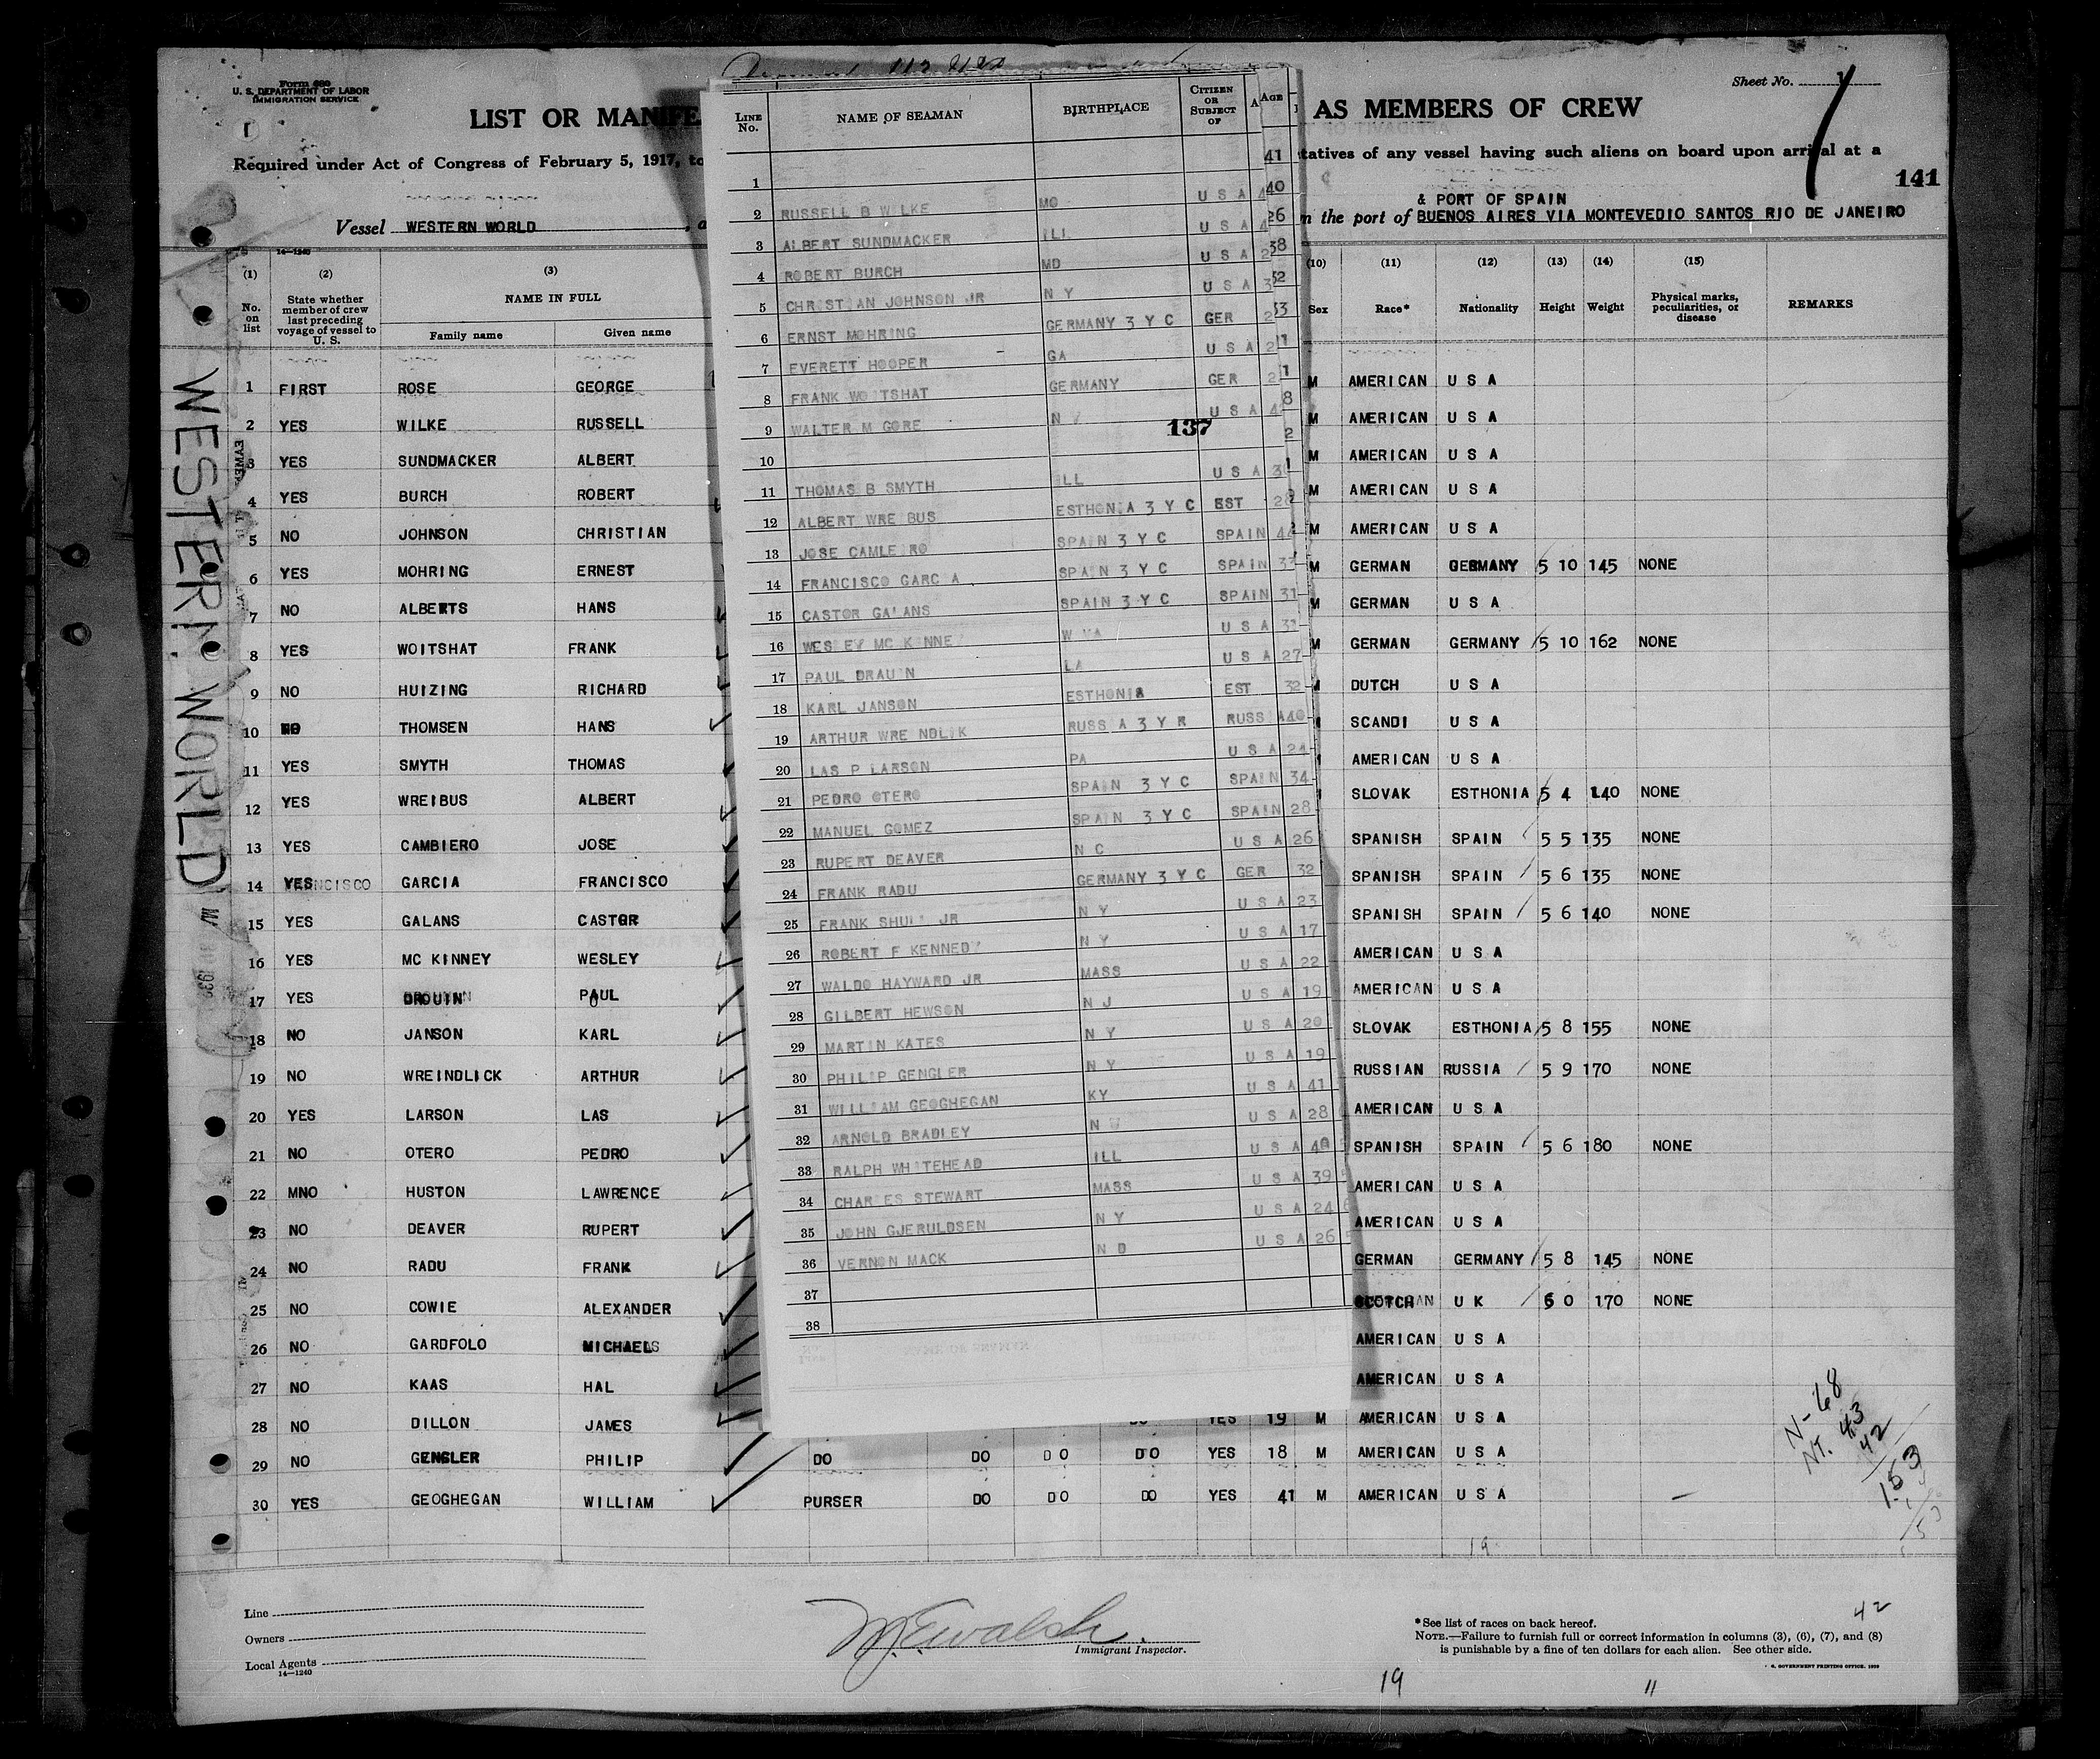 Form 680
U. S. DEPARTMENT OF LABOR
IMMIGRATION SERVICE
Sheet No. 1
LIST OR MANIFE
AS MEMBERS OF CREW
Required under Act of Congress of February 5, 1917, to
tatives of any vessel having such aliens on board upon arrival at a
141
& PORT OF SPAIN
Vessel WESTERN WORLD
n the port of BUENOS AIRES VIA MONTEVEDIO SANTOS RIO DE JANEIRO
14-1240
(1) (2) (3) (10) (11) (12) (13) (14) (15)
No. on list
State whether member of crew last preceding voyage of vessel to U. S.
NAME IN FULL
Family name Given name
Sex Race* Nationality Height Weight
Physical marks, peculiarities, or disease
REMARKS
WESTERN WORLD
1 FIRST ROSE GEORGE M AMERICAN U S A
2 YES WILKE RUSSELL M AMERICAN U S A
3 YES SUNDMACKER ALBERT M AMERICAN U S A
4 YES BURCH ROBERT M AMERICAN U S A
5 NO JOHNSON CHRISTIAN M AMERICAN U S A
6 YES MOHRING ERNEST M GERMAN GERMANY 5 10 145 NONE
7 NO ALBERTS HANS M GERMAN U S A
8 YES WOITSHAT FRANK M GERMAN GERMANY 5 10 162 NONE
9 NO HUIZING RICHARD DUTCH U S A
10 NO THOMSEN HANS SCANDI U S A
11 YES SMYTH THOMAS AMERICAN U S A
12 YES WREIBUS ALBERT SLOVAK ESTHONIA 5 4 140 NONE
13 YES CAMBIERO JOSE SPANISH SPAIN 5 5 135 NONE
14 YES GARCIA FRANCISCO SPANISH SPAIN 5 6 135 NONE
15 YES GALANS CASTOR SPANISH SPAIN 5 6 140 NONE
16 YES MC KINNEY WESLEY AMERICAN U S A
17 YES DROUIN PAUL AMERICAN U S A
18 NO JANSON KARL SLOVAK ESTHONIA 5 8 155 NONE
19 NO WREINDLICK ARTHUR RUSSIAN RUSSIA 5 9 170 NONE
20 YES LARSON LAS AMERICAN U S A
21 NO OTERO PEDRO SPANISH SPAIN 5 6 180 NONE
22 MNO HUSTON LAWRENCE AMERICAN U S A
23 NO DEAVER RUPERT AMERICAN U S A
24 NO RADU FRANK GERMAN GERMANY 5 8 145 NONE
25 NO COWIE ALEXANDER SCOTCH U K 6 0 170 NONE
26 NO GARDFOLO MICHAEL AMERICAN U S A
27 NO KAAS HAL AMERICAN U S A
28 NO DILLON JAMES YES 19 M AMERICAN U S A
29 NO GENGLER PHILIP DO DO DO DO YES 18 M AMERICAN U S A
30 YES GEOGHEGAN WILLIAM PURSER DO DO DO YES 41 M AMERICAN U S A
LINE No. NAME OF SEAMAN BIRTHPLACE CITIZEN OR SUBJECT OF AGE
1
2 RUSSELL B WILKE MO U S A
3 ALBERT SUNDMACKER ILL U S A
4 ROBERT BURCH MD U S A
5 CHRISTIAN JOHNSON JR N Y U S A
6 ERNST MOHRING GERMANY 3 Y C GER
7 EVERETT HOOPER GA U S A
8 FRANK WOITSHAT GERMANY GER
9 WALTER M GORE N Y U S A
137
10
11 THOMAS B SMYTH ILL U S A
12 ALBERT WREIBUS ESTHONIA 3 Y C EST 28
13 JOSE CAMLEIRO SPAIN 3 Y C SPAIN 44
14 FRANCISCO GARCIA SPAIN 3 Y C SPAIN 33
15 CASTOR GALANS SPAIN 3 Y C SPAIN 31
16 WESLEY MC KINNEY W VA U S A 33
17 PAUL DRAUIN LA U S A 27
18 KARL JANSON ESTHONIA EST 32
19 ARTHUR WREINDLIK RUSSIA 3 Y R RUSSIA 40
20 LAS P LARSON PA U S A 24
21 PEDRO OTERO SPAIN 3 Y C SPAIN 34
22 MANUEL GOMEZ SPAIN 3 Y C SPAIN 28
23 RUPERT DEAVER N C U S A 26
24 FRANK RADU GERMANY 3 Y C GER 32
25 FRANK SHULL JR N Y U S A 23
26 ROBERT F KENNEDY N Y U S A 17
27 WALDO HAYWARD JR MASS U S A 22
28 GILBERT HEWSON N J U S A 19
29 MARTIN KATES N Y U S A 20
30 PHILIP GENGLER N Y U S A 19
31 WILLIAM GEOGHEGAN KY U S A 41
32 ARNOLD BRADLEY U S A 28
33 RALPH WHITEHEAD ILL U S A 40
34 CHARLES STEWART MASS U S A 39
35 JOHN GJERULDSEN N Y U S A 24
36 VERNON MACK N D U S A 26
37
38
N-68
NT. 43
42
153
19
Line
Owners
Local Agents
14-1240
M.E. Walsh
Immigrant Inspector.
42
*See list of races on back hereof.
NOTE.—Failure to furnish full or correct information in columns (3), (6), (7), and (8)
is punishable by a fine of ten dollars for each alien. See other side.
GOVERNMENT PRINTING OFFICE
19 11